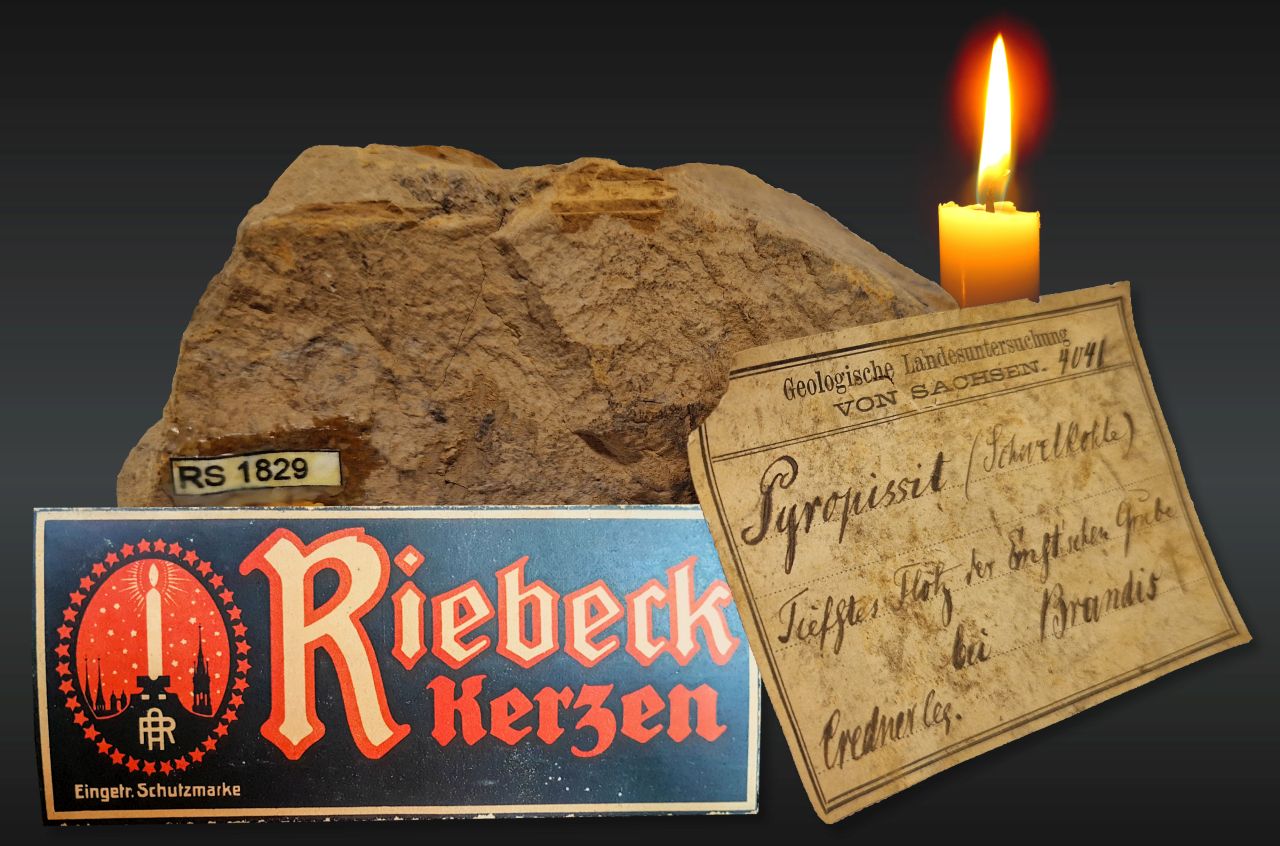 RS 1829
Riebeck
Kerzen
AR
Eingetr. Schutzmarke
Geologische Landesuntersuchung
VON SACHSEN. 4041
Pyropissit (Schwelkohle)
Tiefstes Flötz der Ernst'schen Grube
bei Brandis
Credner leg.